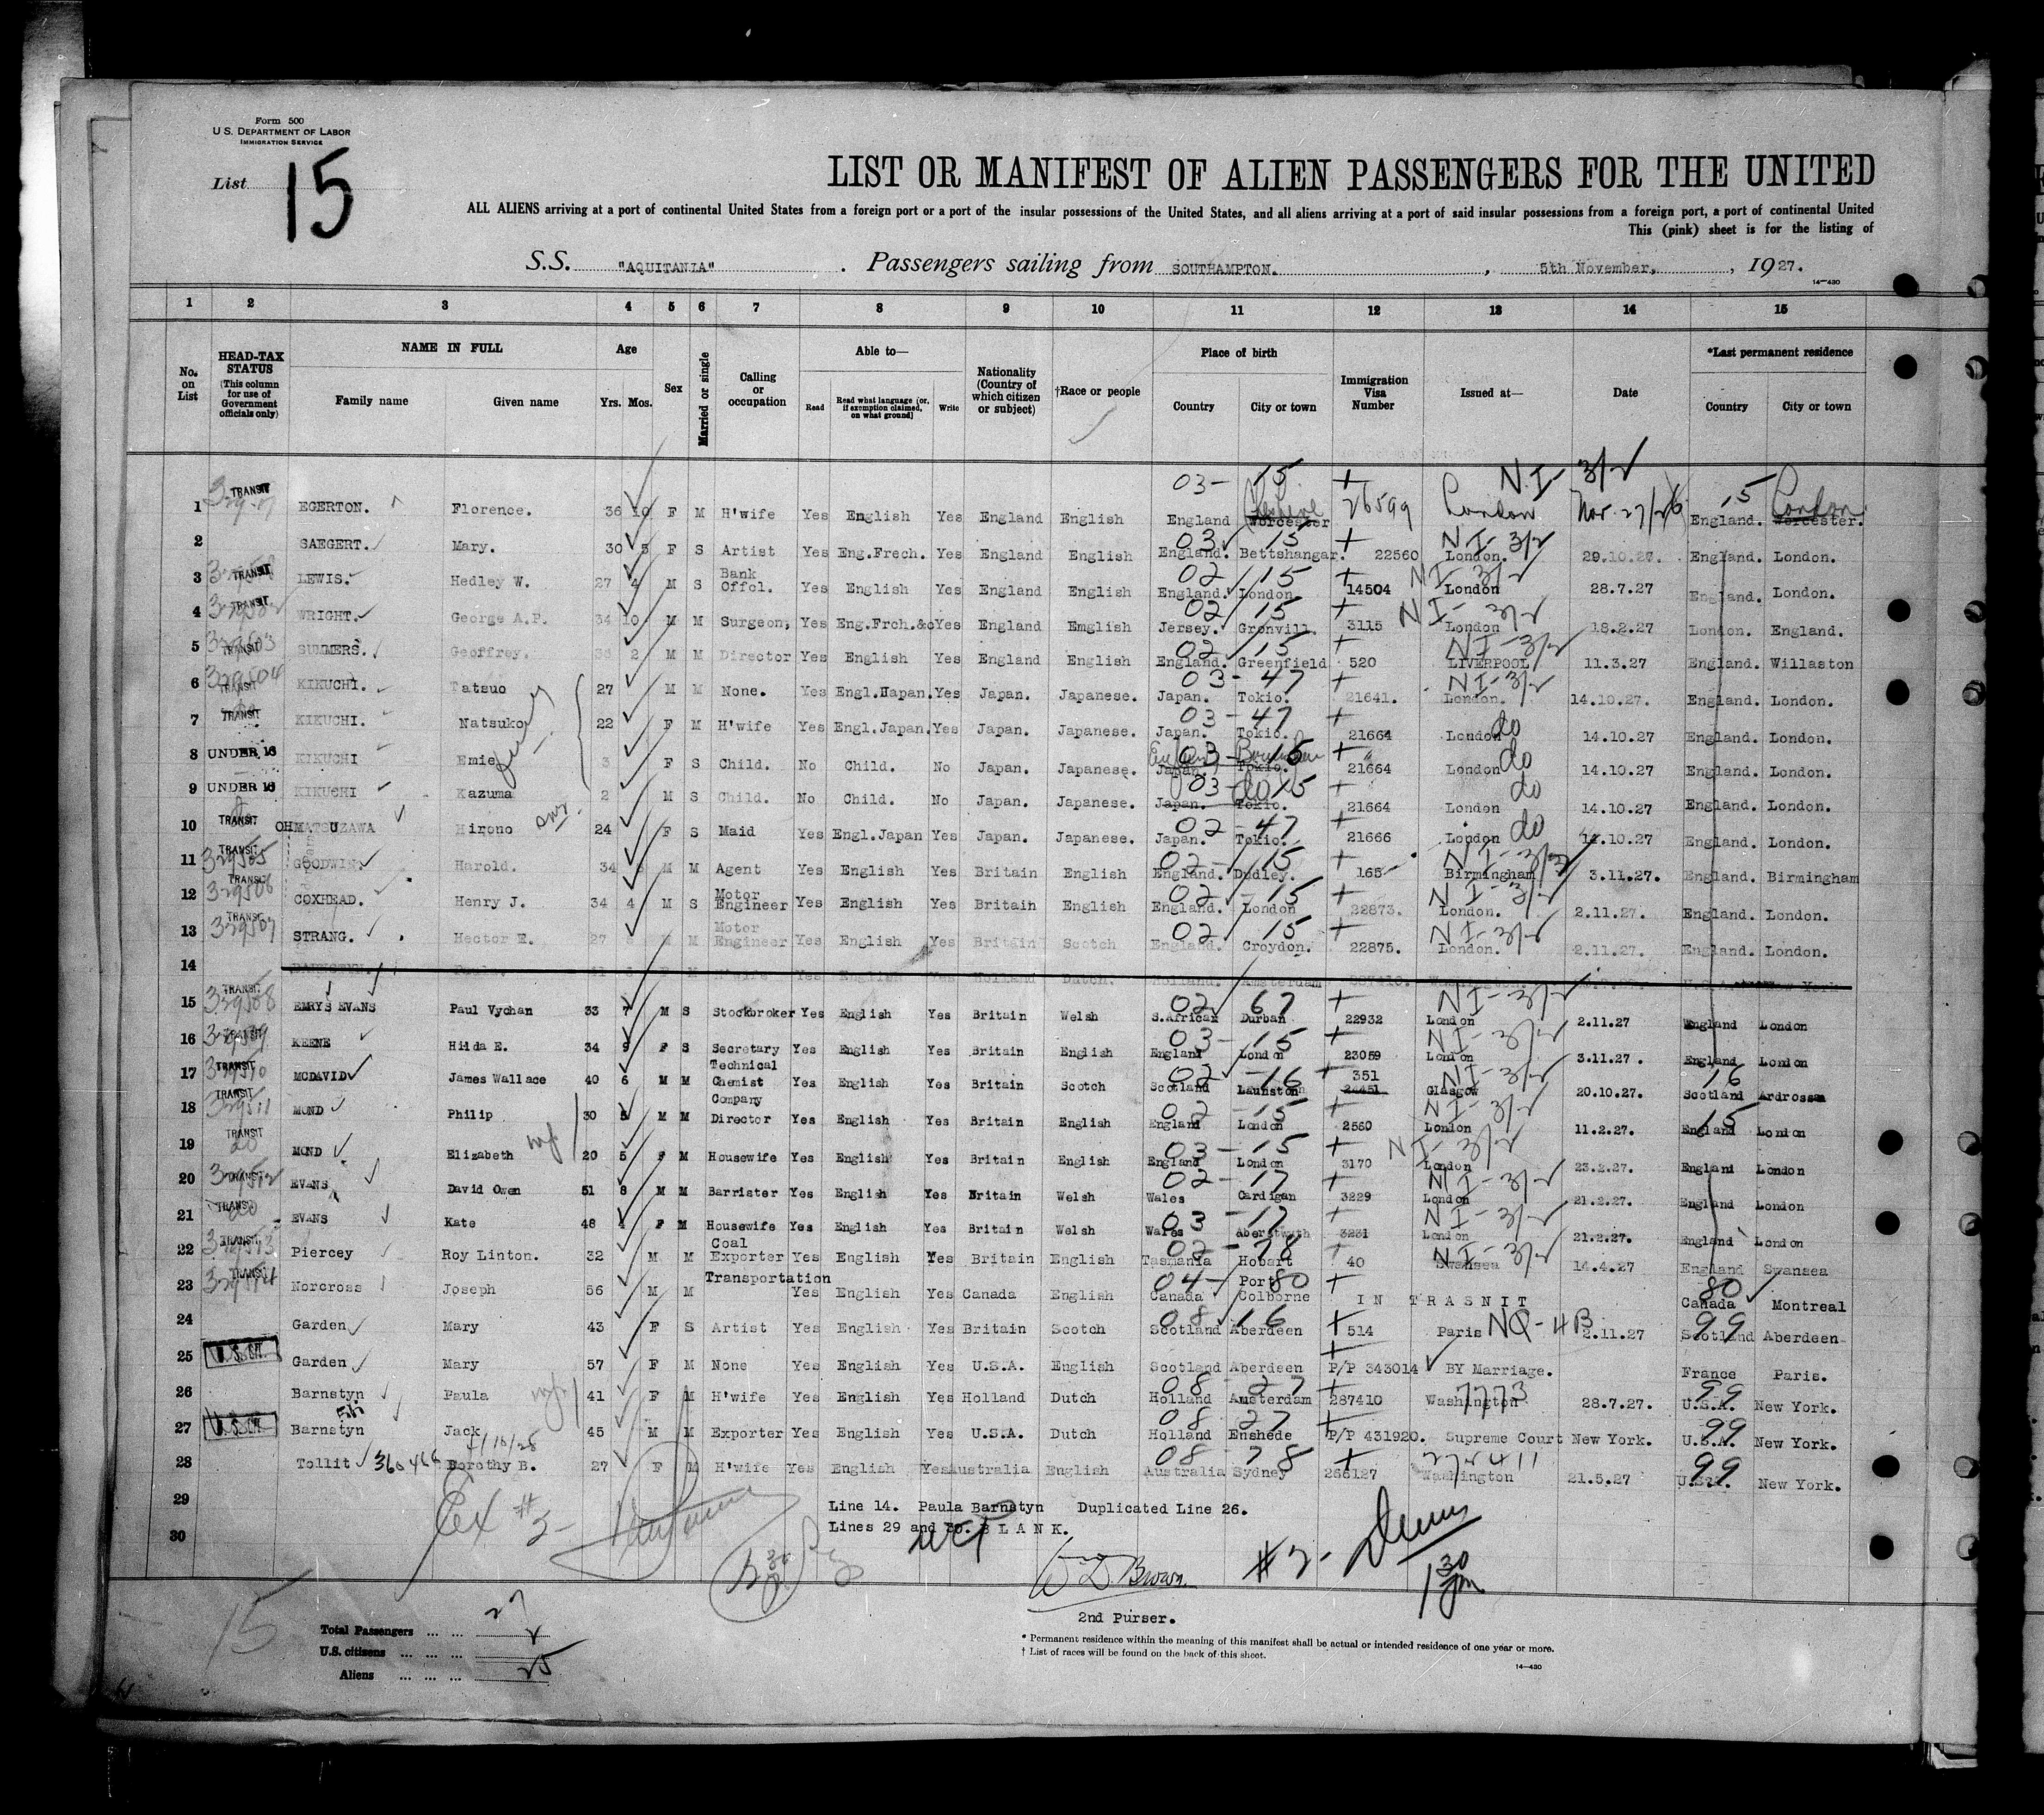 Form 500
U.S. DEPARTMENT OF LABOR
IMMIGRATION SERVICE
List 15
LIST OR MANIFEST OF ALIEN PASSENGERS FOR THE UNITED
ALL ALIENS arriving at a port of continental United States from a foreign port or a port of the insular possessions of the United States, and all aliens arriving at a port of said insular possessions from a foreign port, a port of continental United
This (pink) sheet is for the listing of
S.S. "AQUITANIA" . Passengers sailing from SOUTHAMPTON. , 5th November, , 1927.
14—430
1 2 3 4 5 6 7 8 9 10 11 12 13 14 15
No. on List
HEAD-TAX STATUS (This column for use of Government officials only)
NAME IN FULL
Family name Given name
Age
Yrs. Mos.
Sex
Married or single
Calling or occupation
Able to—
Read Read what language (or, if exemption claimed, on what ground) Write
Nationality (Country of which citizen or subject)
†Race or people
Place of birth
Country City or town
Immigration Visa Number
Issued at—
Date
*Last permanent residence
Country City or town
03- 15 + N.I- 3/2
1 TRANSIT EGERTON. Florence. 36 10 F M H'wife Yes English Yes England English England Worcester 26599 London Nov. 27/26 15 England. Worcester. London
03 15 + N I- 3/2
2 SAEGERT. Mary. 30 5 F S Artist Yes Eng.Frech. Yes England English England. Bettshangar. 22560 London. 29.10.27. England. London.
02 15 + N I- 3/2
3 TRANSIT LEWIS. Hedley W. 27 4 M S Bank Offcl. Yes English Yes England English England. London 14504 London 28.7.27 England. London.
02 15 + N I- 3/2
4 TRANSIT WRIGHT. George A.P. 34 10 M M Surgeon, Yes Eng.Frch.&c Yes England Emglish Jersey. Gronvill 3115 London 18.2.27 London. England.
02 15 N I- 3/2
5 329503 SUMMERS. Geoffrey. 2 M M Director Yes English Yes England English England. Greenfield 520 LIVERPOOL 11.3.27 England. Willaston
03- 47 + N I- 3/2
6 329504 TRANSIT KIKUCHI. Tatsuo 27 M M None. Yes Engl.Hapan. Yes Japan. Japanese. Japan. Tokio. 21641. London. 14.10.27. England. London.
03 - 47 +
7 TRANSIT KIKUCHI. Natsuko 22 F M H'wife Yes Engl.Japan. Yes Japan. Japanese. Japan. Tokio. 21664 London do 14.10.27 England. London.
03 - 15 +
8 UNDER 16 KIKUCHI Emie 3 F S Child. No Child. No Japan. Japanese. Japan. Tokio. 21664 London do 14.10.27 England. London.
03 do 15 +
9 UNDER 16 KIKUCHI Kazuma 2 M S Child. No Child. No Japan. Japanese. Japan. Tokio. 21664 London do 14.10.27 England. London.
02 - 47 +
10 TRANSIT OHMATSUZAWA Hirono 24 F S Maid Yes Engl.Japan Yes Japan. Japanese. Japan. Tokio. 21666 London do 14.10.27 England. London.
02 - 15 + N I- 3/2
11 TRANSIT 329505 GOODWIN. Harold. 34 M M Agent Yes English Yes Britain English England. Dudley. 165 Birmingham 3.11.27. England. Birmingham
02 - 15 + N I- 3/2
12 TRANSIT 329506 COXHEAD. Henry J. 34 4 M S Motor Engineer Yes English Yes Britain English England. London 22873. London. 2.11.27. England. London.
02 15 + N I- 3/2
13 TRANSIT 329507 STRANG. Hector E. 27 M M Motor Engineer Yes English Yes Britain Scotch England. Croydon. 22875. London. 2.11.27. England. London.
14 Yes English Yes Holland Dutch. Holland. Amsterdam
02 67 + N I- 3/2
15 TRANSIT 329508 EMRYS EVANS Paul Vychan 33 7 M S Stockbroker Yes English Yes Britain Welsh S.African Durban 22932 London 2.11.27 England London
03 - 15 + N I- 3/2
16 TRANSIT 329509 KEENE Hilda E. 34 9 F S Secretary Yes English Yes Britain English England London 23059 London 3.11.27. England London
02 - 16 + N I- 3/2
17 TRANSIT MCDAVID James Wallace 40 6 M M Technical Chemist Yes English Yes Britain Scotch Scotland Launston 351 24451 Glasgow 20.10.27. 16 Scotland Ardrossan
02 - 15 + N I- 3/2
18 TRANSIT 329511 MOND Philip 30 8 M M Company Director Yes English Yes Britain English England London 2560 London 11.2.27. 15 England London
03 - 15 + N I- 3/2
19 TRANSIT do MOND Elizabeth 20 5 F M Housewife Yes English Yes Britain English England London 3170 London 23.2.27. England London
02 - 17 + N I- 3/2
20 TRANSIT 329512 EVANS David Owen 51 8 M M Barrister Yes English Yes Britain Welsh Wales Cardigan 3229 London 21.2.27. England London
03 - 17 + N I- 3/2
21 TRANSIT do EVANS Kate 48 4 F M Housewife Yes English Yes Britain Welsh Wales Aberstwyth 3231 London 21.2.27. England London
02 - 78 + N I- 3/2
22 TRANSIT 329513 Piercey Roy Linton. 32 M M Coal Exporter Yes English Yes Britain English Tasmania Hobart 40 Swansea 14.4.27 England Swansea
04 - 80 +
23 TRANSIT 329514 Norcross Joseph 56 M M Transportation Yes English Yes Canada English Canada Port Colborne IN TRASNIT 80 Canada Montreal
08 16 +
24 Garden Mary 43 F S Artist Yes English Yes Britain Scotch Scotland Aberdeen 514 Paris NQ-4B 2.11.27 99 Scotland Aberdeen
25 U.S.CIT. Garden Mary 57 F M None Yes English Yes U.S.A. English Scotland Aberdeen P/P 343014 BY Marriage. France Paris.
08 - 27 +
26 Barnstyn Paula 41 F M H'wife Yes English Yes Holland Dutch Holland Amsterdam 287410 Washington 7773 28.7.27. 99 U.S.A. New York.
08 27 +
27 U.S.CIT. Barnstyn Jack 45 M M Exporter Yes English Yes U.S.A. Dutch Holland Enshede P/P 431920. Supreme Court New York. 99 U.S.A. New York.
08 78 +
28 Tollit 360466 Dorothy B. 27 F M H'wife Yes English Yes Australia English Australia Sydney 266127 Washington 21.5.27 99 U.S.A. New York.
29 Line 14. Paula Barnstyn Duplicated Line 26.
30 Lines 29 and 30. B L A N K.
W D Brown.
2nd Purser.
15
Total Passengers ... ... 27
U.S. citizens ... ... ... 2
Aliens ... ... ... 25
* Permanent residence within the meaning of this manifest shall be actual or intended residence of one year or more.
† List of races will be found on the back of this sheet.
14—430